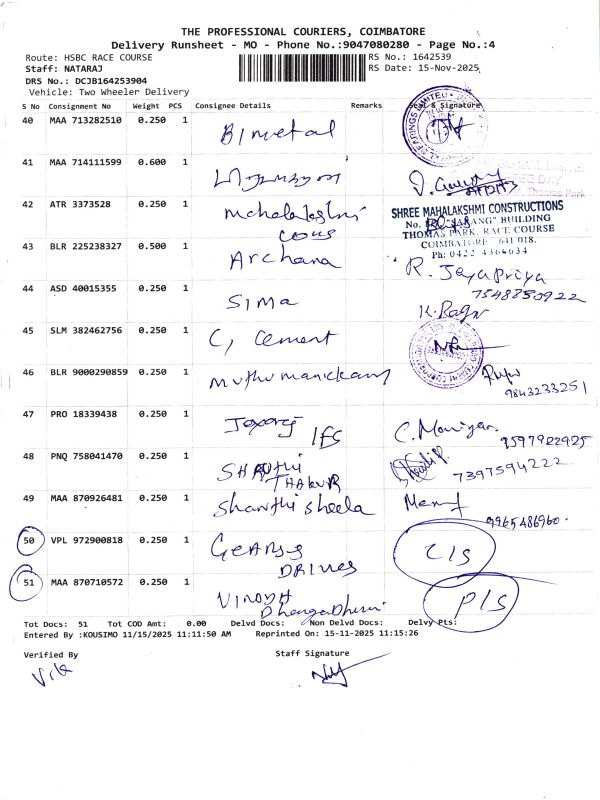 THE PROFESSIONAL COURIERS, COIMBATORE
Delivery Runsheet - MO - Phone No.:9047080280 - Page No.:4
Route: HSBC RACE COURSE RS No.: 1642539
Staff: NATARAJ RS Date: 15-Nov-2025
DRS No.: DCJB164253904
Vehicle: Two Wheeler Delivery
S No Consignment No Weight PCS Consignee Details Remarks Seal & Signature
40 MAA 713282510 0.250 1 Bimetal
41 MAA 714111599 0.600 1
42 ATR 3373528 0.250 1 Mahalakshmi
cons
SHREE MAHALAKSHMI CONSTRUCTIONS
"SARANG" BUILDING
THOMAS PARK, RACE COURSE
COIMBATORE 641 018.
Ph: 0422 4364634
43 BLR 225238327 0.500 1 Archana R. Jayapriya
7548850922
44 ASD 40015355 0.250 1 Sima K. Ragu
45 SLM 382462756 0.250 1 C, Cement
46 BLR 9000290859 0.250 1 muthu manickam
9843233251
47 PRO 18339438 0.250 1 IFS C. Moniyan.
9597922925
48 PNQ 758041470 0.250 1 SHANTHI
THAKUR 7397594222
49 MAA 870926481 0.250 1 Shanthi sheela
9965486960.
50 VPL 972900818 0.250 1 GEARS CIS
DRIVES
51 MAA 870710572 0.250 1 VINODH PIS
Tot Docs: 51 Tot COD Amt: 0.00 Delvd Docs: Non Delvd Docs: Delvy Pts:
Entered By :KOUSIMO 11/15/2025 11:11:50 AM Reprinted On: 15-11-2025 11:15:26
Verified By Staff Signature